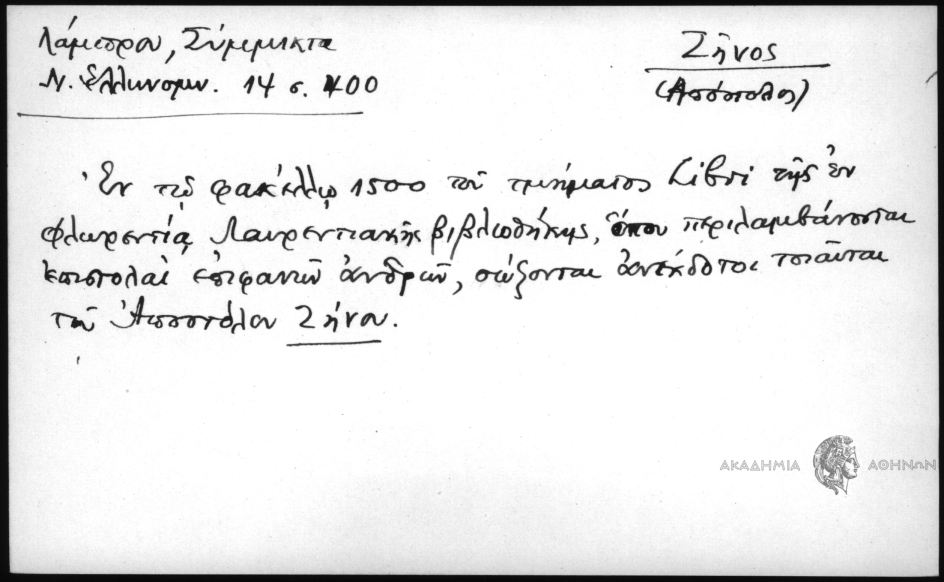 Λάμπρου, Σύμμικτα
Ν. Ἑλληνομν. 14 σ. 400
Ζῆνος
(Ἀπόστολος)
Ἐν τῷ φακέλλῳ 1500 τοῦ τμήματος Libri τῆς ἐν
Φλωρεντίᾳ Λαυρεντιακῆς βιβλιοθήκης, ὅπου περιλαμβάνονται
ἐπιστολαὶ ἐπιφανῶν ἀνδρῶν, σῴζονται ἀνέκδοτοι τοιαῦται
τοῦ Ἀποστόλου Ζήνου.
ΑΚΑΔΗΜΙΑ ΑΘΗΝΩΝ